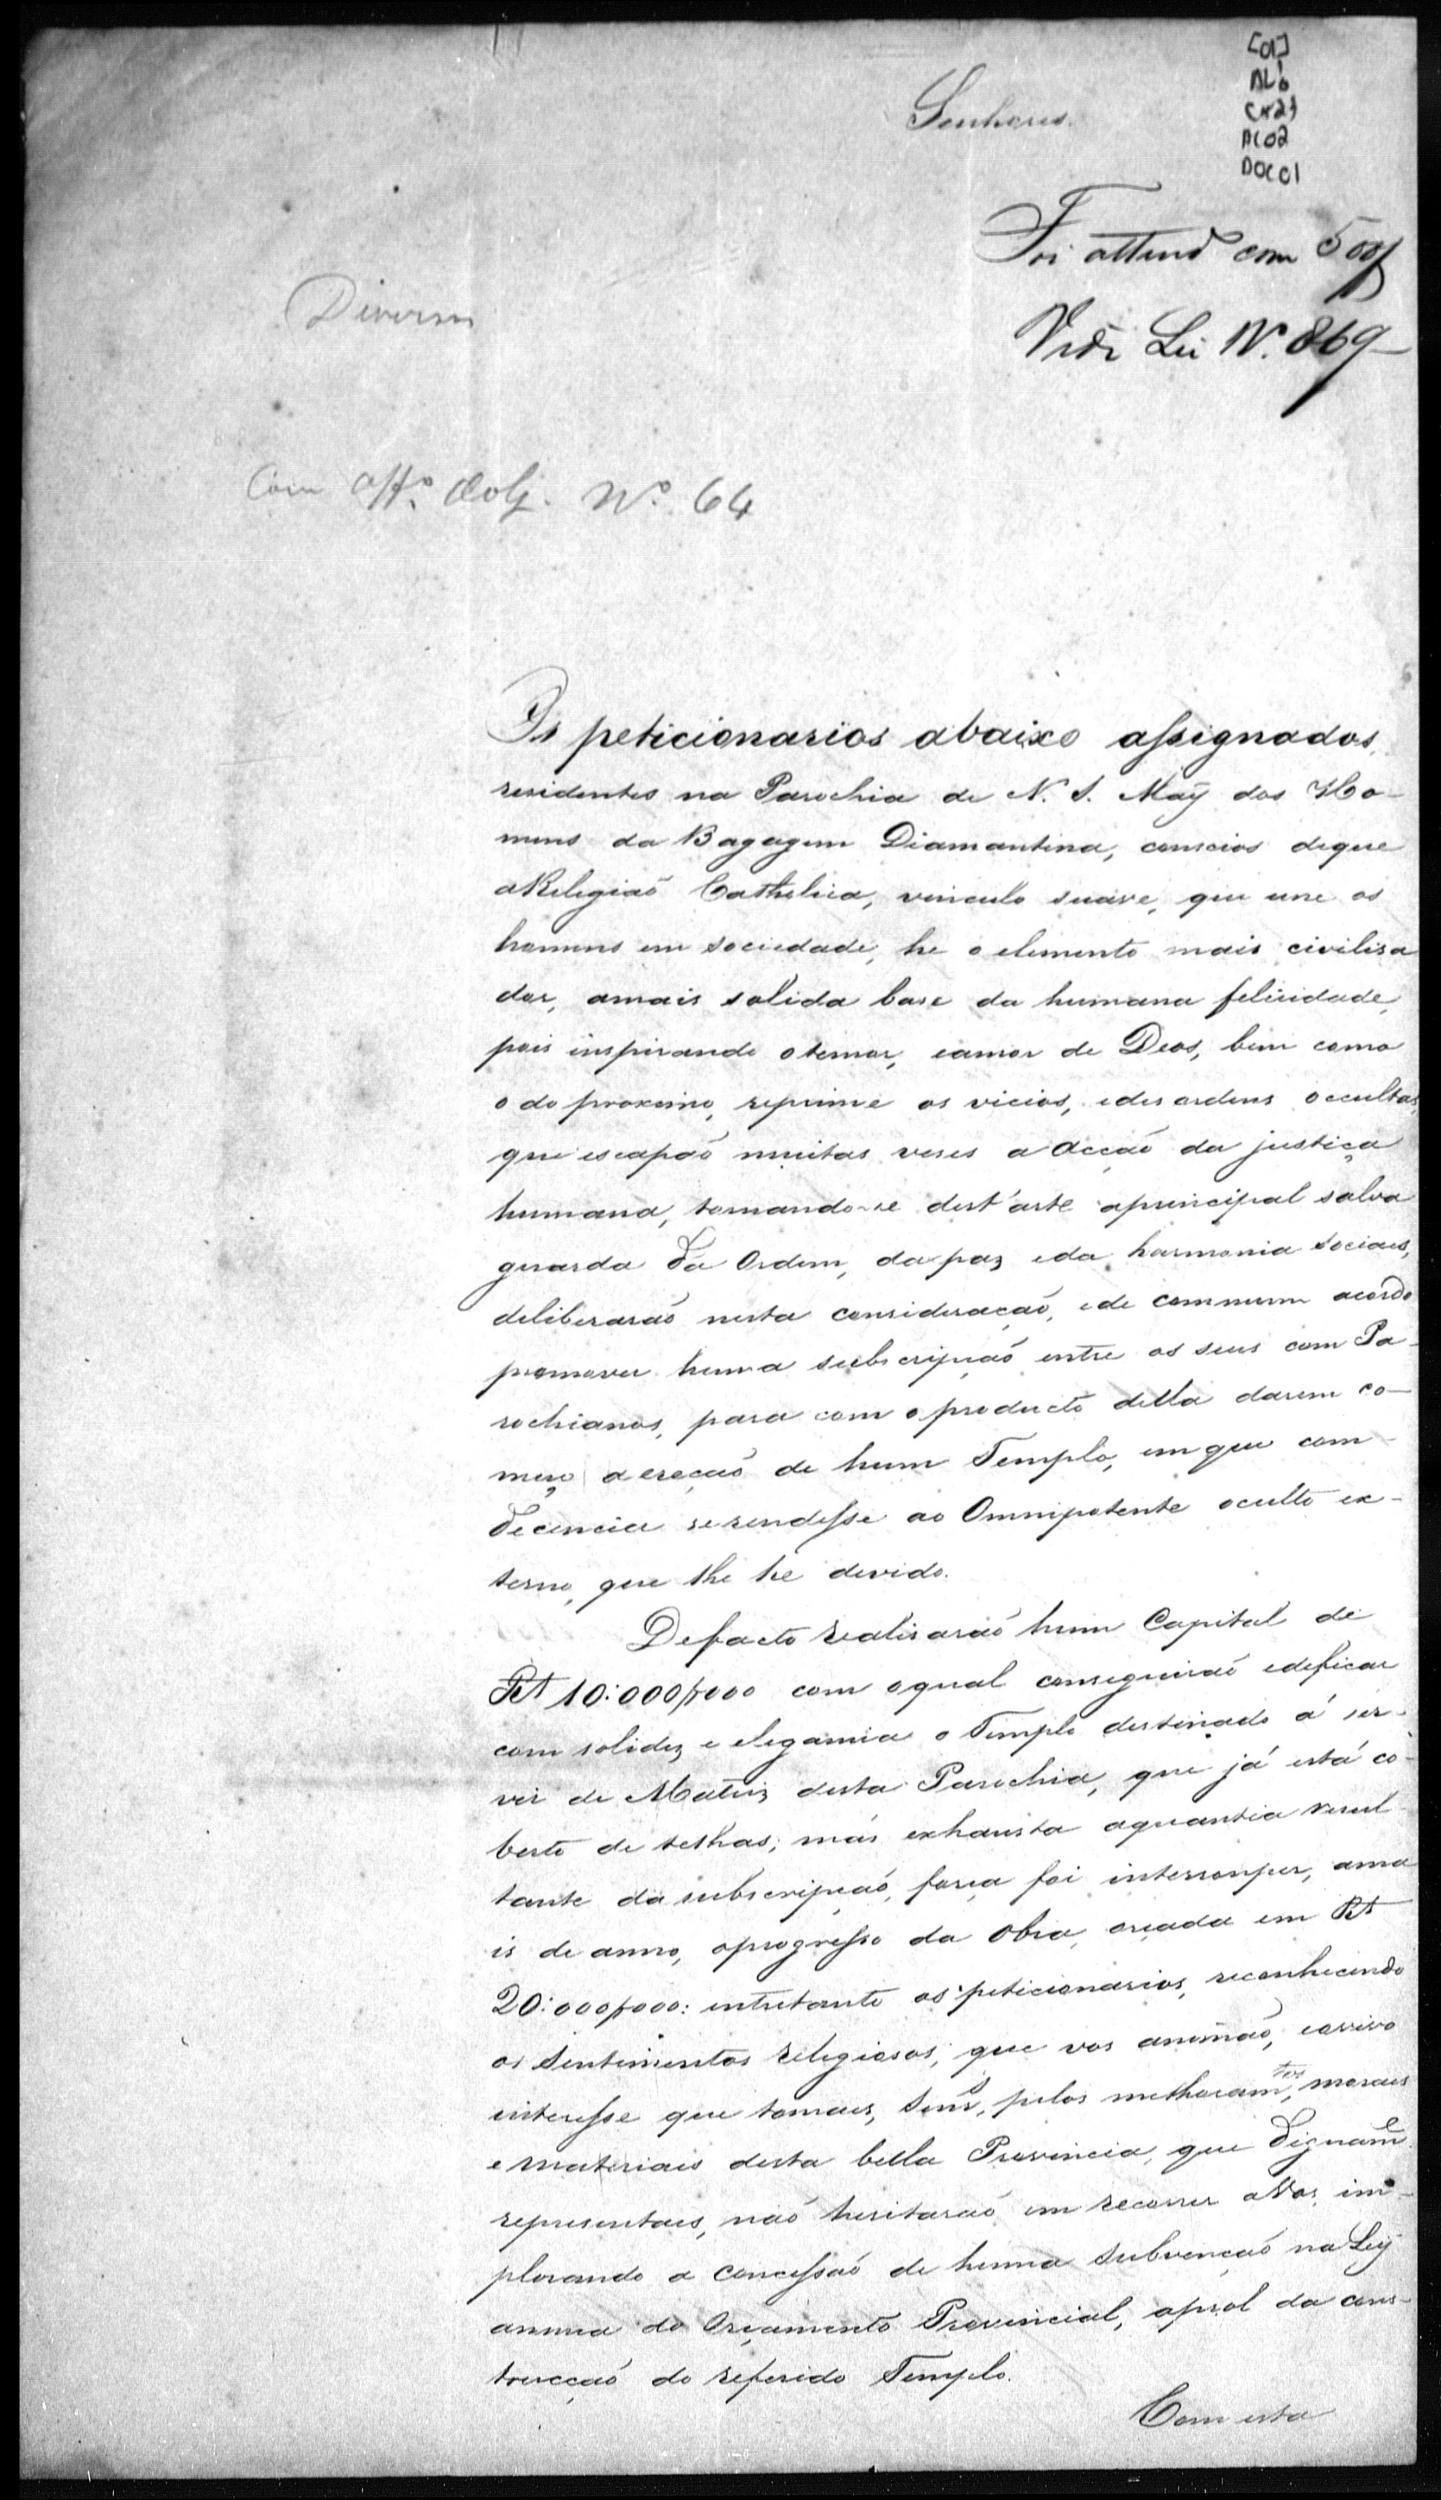 [01]
AL6
CX27
AC02
DOC01
Senhores.
Foi attend° com 500$
Vide Lei Nº. 869
Diversos
Com Off.º Nº. 64
Os peticionarios abaixo assignados,
residentes na Parochia de N. S. Maÿ dos Ho-
mens da Bagagem Diamantina, conscios deque
aReligiaõ Catholica, vinculo suave, que une os
homens em sociedade, he o elemento mais civilisa
dor, amais solida base da humana felicidade,
pois inspirando otemor, eamor de Deos, bem como
o do proximo, reprime os vicios, edesordens occultas
que escapaõ muitas veses a acçaõ da justiça
humana, tornando-se dest'arte aprincipal salva
guarda da Ordem, dapaz eda harmonia sociaes,
deliberaraõ nesta consideraçaõ, ede commum acordo
promover huma subscripçaõ entre os seus com Pa-
rochianos, para com oproducto della darem co-
meço a ereçaõ de hum Templo, emque com
decencia serendesse ao Omnipotente oculto ex-
terno, que lhe he devido.
Defacto realisaraõ hum Capital de
Rs 10:000$000 com oqual conseguiraõ edeficar
com solidez e elegancia o Templo destinado á ser-
vir de Matriz desta Parochia, que já está co-
berto de telhas; mas exhausta aquantia resul
tante da subscripçaõ, força foi interromper, ama
is de anno, oprogresso da Obra, orçada em Rs
20:000$000: entretanto os peticionarios, reconhecendo
os Sentimentos religiosos, que vos animaõ, eovivo
interesse que tomaes, Senrs, pelos melhoramtos, moraes
e materiais desta bella Provincia, que digname
representaes, naõ hesitaraõ em recorrer aVos, im-
plorando a concessaõ de huma Subvençaõ na Leÿ
annua do Orçamento Provincial, aprol da cons-
trucçaõ do referido Templo.
Com esta